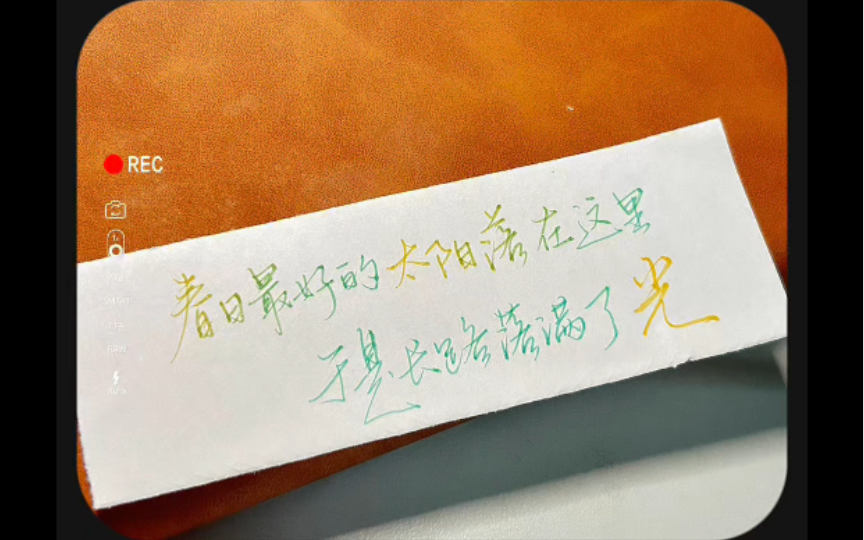 REC
春日最好的太阳落在这里
于是长路落满了光